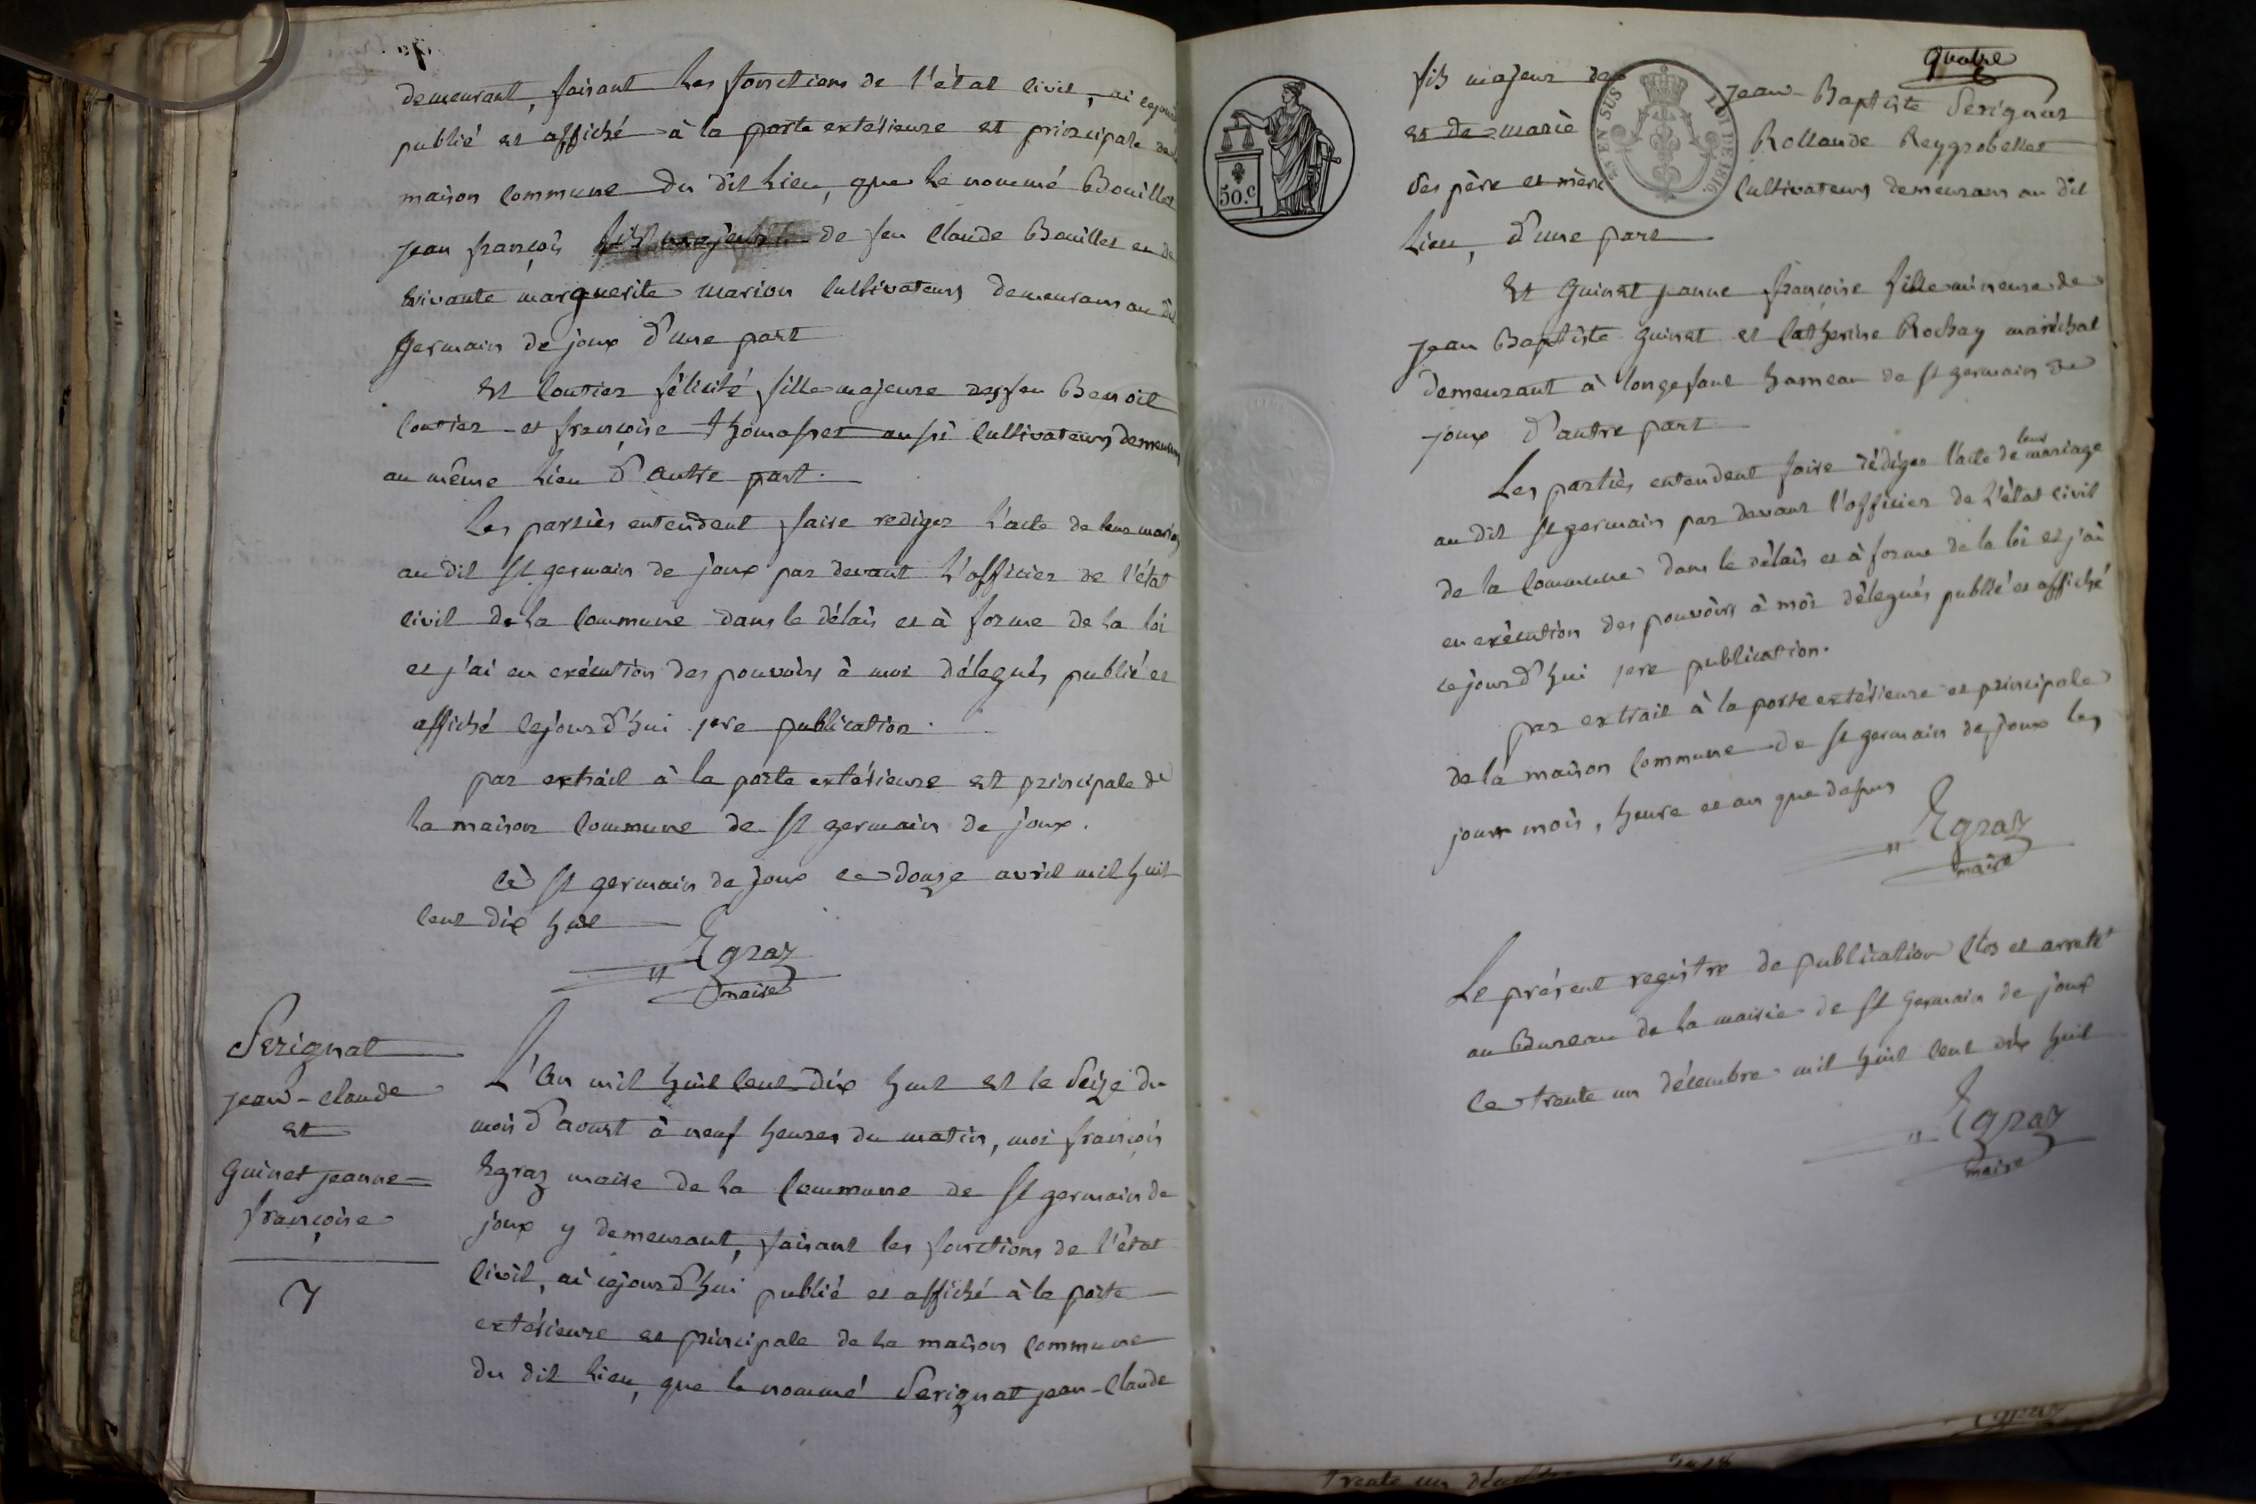 demeurant, faisant les fonctions de l'état civil, ai cejourd
publié et affiché à la porte extérieure et principale de la
maison commune du dit lieu, que le nommé Bouillet
jean françois fils majeur de feu Claude Bouillet et de
vivante marguerite Marion Cultivateurs demeurans au dit
germain de joux d'une part
Et Coutier félicité fille majeure de feu Benoit
Coutier et françoise thomasset aussi Cultivateurs demeurans
au même lieu d'autre part.
Les parties entendent faire rediger l'acte de leur mariage
au dit st germain de joux par devant l'officier de l'état
civil de la Commune dans le délais et à forme de la loi
et j'ai en exécution des pouvoirs à moi délegués publié et
affiché cejourd'hui 1ere publication.
par extrait à la porte extérieure et principale de
la maison Commune de st germain de joux.
à st germain de joux ce douze avril mil huit
cent dix huit
Egraz
maire
Serignat
jean-claude
et
Guinet jeanne
françoise
7
L'an mil huit cent dix huit et le seize du
mois d'aoust à neuf heures du matin, moi françois
Egraz maire de la Commune de st germain de
joux y demeurant, faisant les fonctions de l'état
Civil, ai cejourd'hui publié et affiché à la porte
extérieure et principale de la maison Commune
du dit lieu, que le nommé Serignat jean-Claude
quatre
50.c
EN SUS
LOI DE 1816
fils majeur de jean-Baptiste Serignat
et de marie Rollande Reygrobellet
ses père et mère Cultivateurs demeurans au dit
lieu, d'une part
Et Guinet janne françoise fille mineure de
jean Baptiste Guinet et Catherine Rochay maréchal
demeurant à longefant hameau de st germain de
joux d'autre part
leur
Les parties entendent faire rédiger l'acte de mariage
au dit st germain par devant l'officier de l'état civil
de la Commune dans le délais et à forme de la loi et j'ai
en exécution des pouvoirs à moi délegués publié et affiché
cejourd'hui 1ere publication.
par extrait à la porte extérieure et principale
de la maison Commune de st germain de joux les
jour mois, heure et an que dessus
Egraz
maire
Le présent registre de publication clos et arrêté
au Bureau de la mairie de st germain de joux
ce trente un décembre mil huit cent dix huit
Egraz
maire
Egraz
trente un